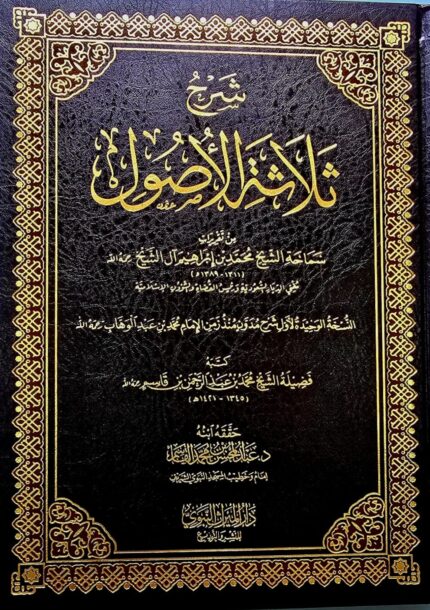 شَرْحُ
ثَلَاثَةِ الأُصُولِ
مِنْ تَقْرِيرَاتِ
سَمَاحَةِ الشَّيْخِ مُحَمَّدِ بْنِ إِبْرَاهِيمَ آلِ الشَّيْخِ رحمه الله
(١٣١١ - ١٣٨٩ه)
مُفْتِي الدِّيَارِ السُّعُودِيَّةِ وَرَئِيسِ القُضَاةِ وَالشُّؤُونِ الإِسْلَامِيَّةِ
النُّسْخَةُ الوَحِيدَةُ لِأَوَّلِ شَرْحٍ مُدَوَّنٍ مُنْذُ زَمَنِ الإِمَامِ مُحَمَّدِ بْنِ عَبْدِ الوَهَّابِ رحمه الله
كَتَبَهُ
فَضِيلَةُ الشَّيْخِ مُحَمَّدُ بْنُ عَبْدِ الرَّحْمَنِ بْنِ قَاسِمٍ رحمه الله
(١٣٤٥ - ١٤٢١ه)
حَقَّقَهُ ابْنُهُ
د. عَبْدُ المُحْسِنِ بْنُ مُحَمَّدٍ القَاسِمُ
إمَام وَخَطِيب المَسْجِد النَّبَوِيّ الشَّرِيف
دَارُ المِيرَاثِ النَّبَوِيِّ
لِلنَّشْرِ وَالتَّوْزِيعِ